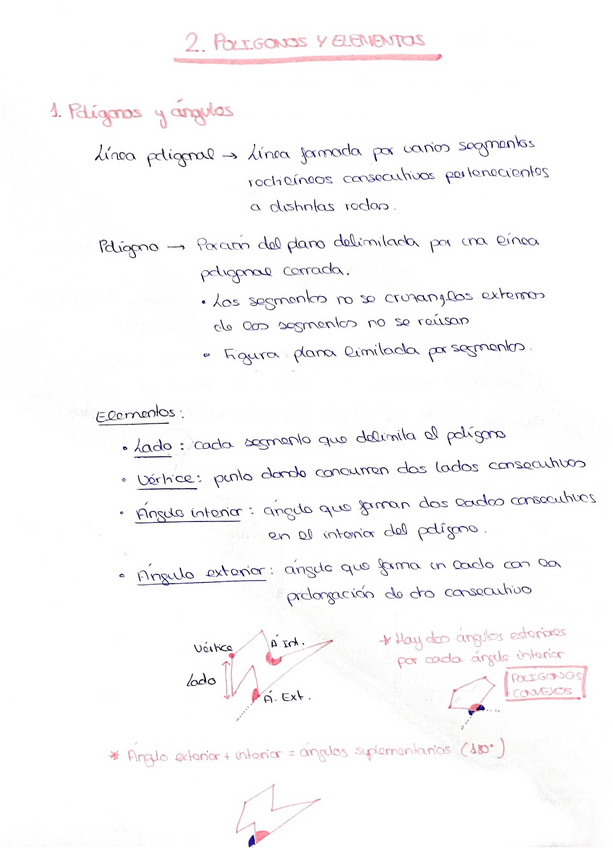 2. POLIGONOS Y ELEMENTOS
1. Polígonos y ángulos
Línea poligonal → Línea formada por varios segmentos
rectilíneos consecutivos pertenecientes
a distintas rectas.
Polígono → Porción del plano delimitada por una línea
poligonal cerrada.
• Los segmentos no se cruzan y los extremos
de los segmentos no se reúsan
• Figura plana limitada por segmentos.
Elementos:
• Lado: cada segmento que delimita el polígono
• Vértice: punto donde concurren dos lados consecutivos
• Ángulo interior: ángulo que forman dos lados consecutivos
en el interior del polígono.
• Ángulo exterior: ángulo que forma un lado con la
prolongación de otro consecutivo
Vértice
Á Int.
Lado
Á. Ext.
* Hay dos ángulos exteriores
por cada ángulo interior
POLIGONOS
CONVEXOS
* Ánglo exterior + interior = ángulos suplementarios (180°)